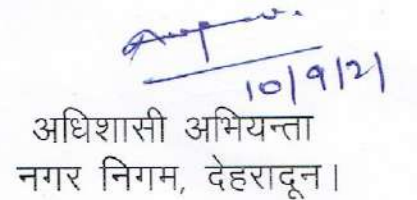 10/9/21
अधिशासी अभियन्ता
नगर निगम, देहरादून।